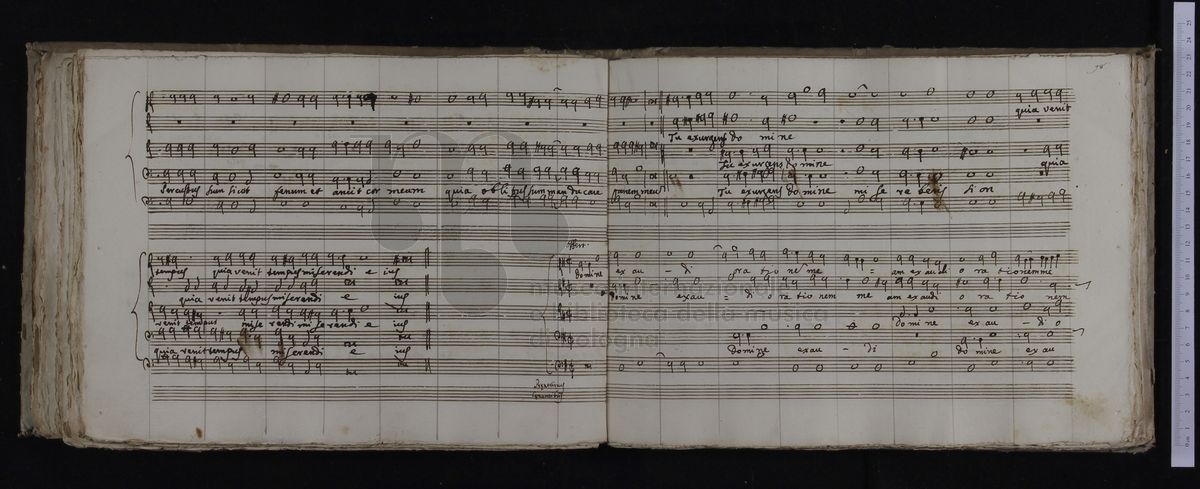 quia venit
Tu exurgens do mine
Tu exurgens domine quia
percussus sum sicut fenum et aruit cor meum quia oblitus sum manducare panem meum Tu exurgens domine mi se re beris sion
offert.
tempus quia venit tempus miserendi e ius domine ex au - di ora tio ne me = am exaudi o ra tionem me
quia venit tempus miserendi e ius domine exau = di o ra tio nem me am exaudi o ra tio nem
museo internazionale
venit tempus mise rendi miserendi e ius domine ex au - di o
e biblioteca della musica
di bologna
quia venit tempus miserendi e ius domine exau - di domine ex au